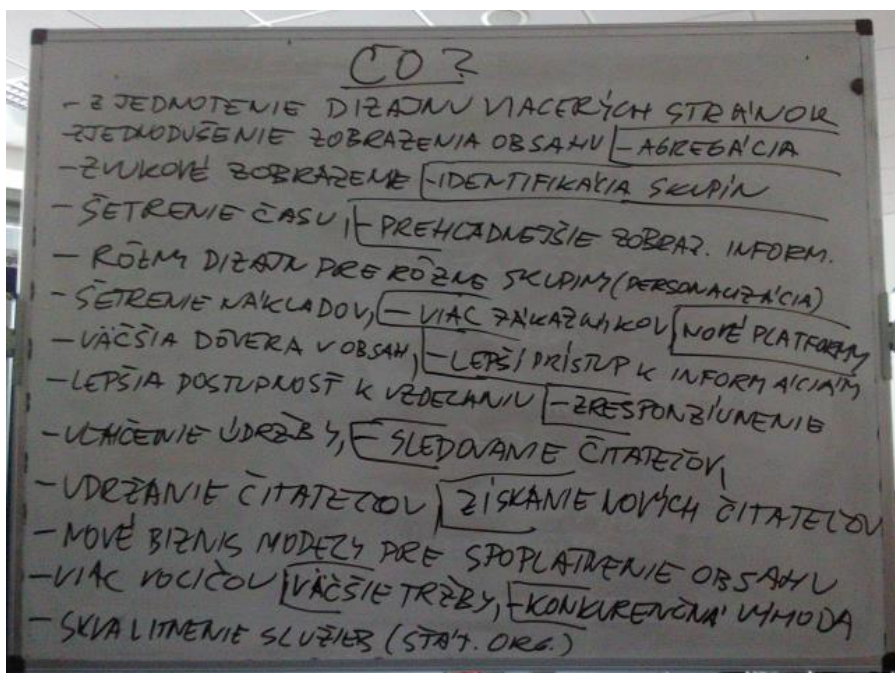 ČO?
- ZJEDNOTENIE DIZAJNU VIACERÝCH STRÁNOK
- ZJEDNODUŠENIE ZOBRAZENIA OBSAHU - AGREGÁCIA
- ZVUKOVÉ ZOBRAZENIE - IDENTIFIKÁCIA SKUPÍN
- ŠETRENIE ČASU, - PREHĽADNEJŠIE ZOBRAZ. INFORM.
- RÔZNY DIZAJN PRE RÔZNE SKUPINY (PERSONALIZÁCIA)
- ŠETRENIE NÁKLADOV, - VIAC ZÁKAZNÍKOV NOVÉ PLATFORMY
- VÄČŠIA DÔVERA V OBSAH, - LEPŠÍ PRÍSTUP K INFORMÁCIÁM
- LEPŠIA DOSTUPNOSŤ K VZDELANIU - ZRESPONZÍVNENIE
- UĽAHČENIE ÚDRŽBY, - SLEDOVANIE ČITATEĽOV,
- UDRŽANIE ČITATEĽOV ZÍSKANIE NOVÝCH ČITATEĽOV
- NOVÉ BIZNIS MODELY PRE SPOPLATNENIE OBSAHU
- VIAC VOLIČOV VÄČŠIE TRŽBY, - KONKURENČNÁ VÝHODA
- SKVALITNENIE SLUŽIEB (ŠTÁT. ORG.)